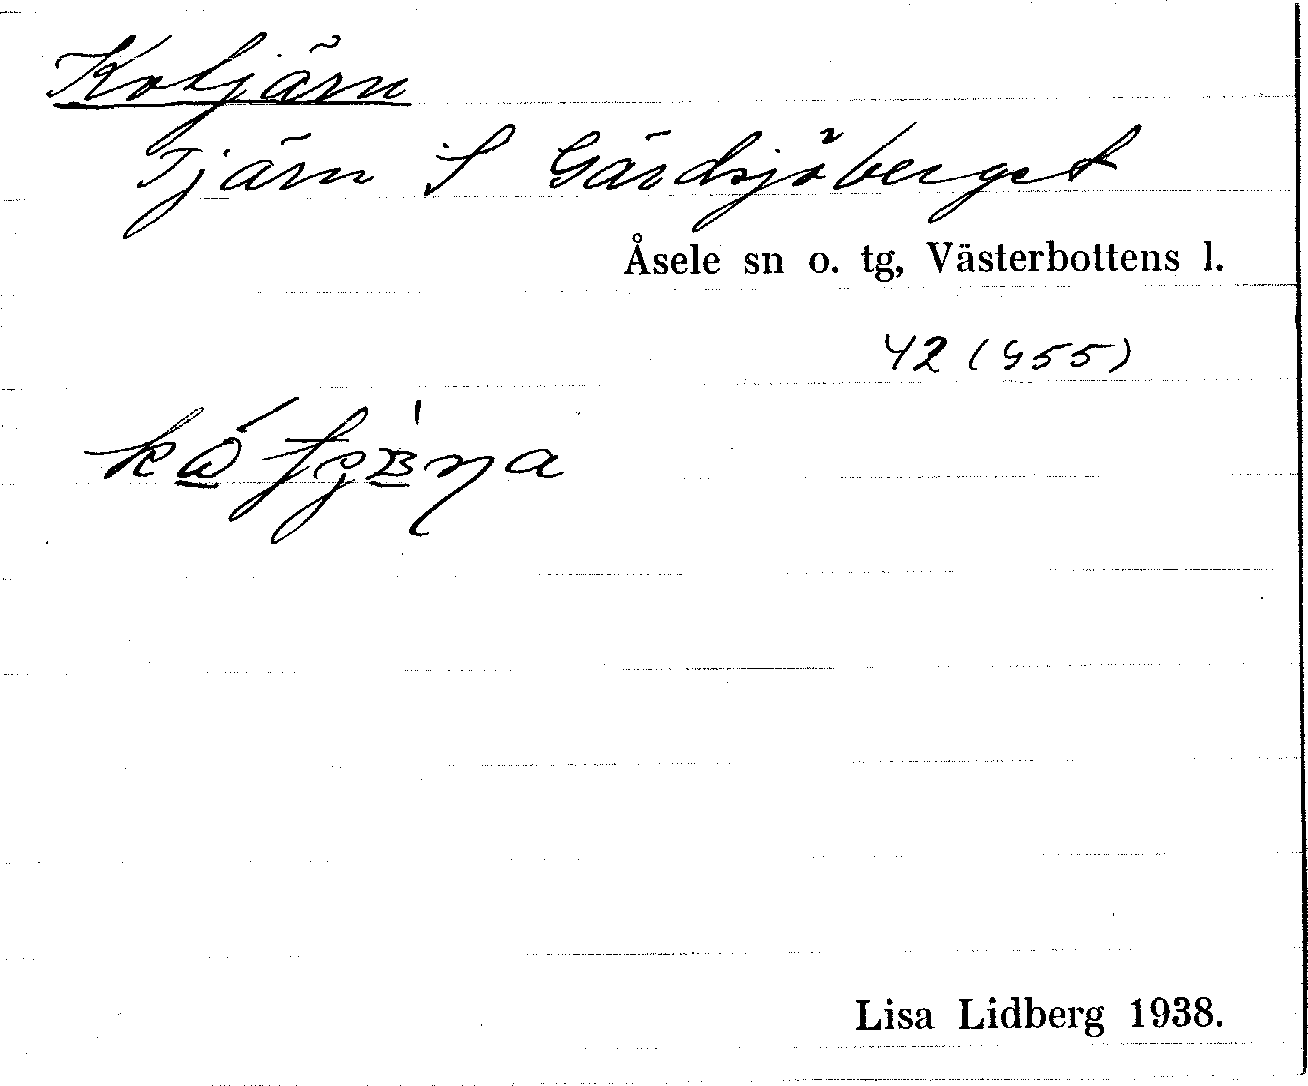 Kotjärn
Tjärn S Gärdsjöberget
Åsele sn o. tg, Västerbottens l.
42 (955)
Lisa Lidberg 1938.